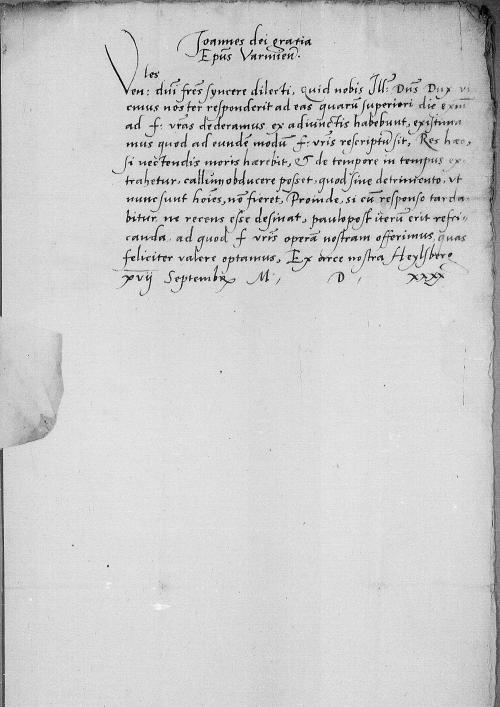 Joannes dei gratia
Epūs Varmień.
Vles
Ven: dūi frēs syncere dilecti, Quid nobis Ill: Dn̄s Dux
cinus noster responderit ad eas quarū superiori die
ad f: vrās dederamus ex adiunctis habebunt, existima
mus quod ad eundē modū f: vrīs rescriptū sit, Res haec,
si nectendis moris haerebit, & de tempore in tempus ex
trahetur, callum obducere posset, quod sine detrimento, ut
nunc sunt hoīes, nō fieret, Proinde, si cū responso tarda
bitur, ne recens esse desinat, paulopost iterū erit refri,
canda, ad quod f. vrīs operā nostram offerimus, quas
feliciter valere optamus, Ex arce nostra Heylsberg
xvij Septembris M, D, xxxx